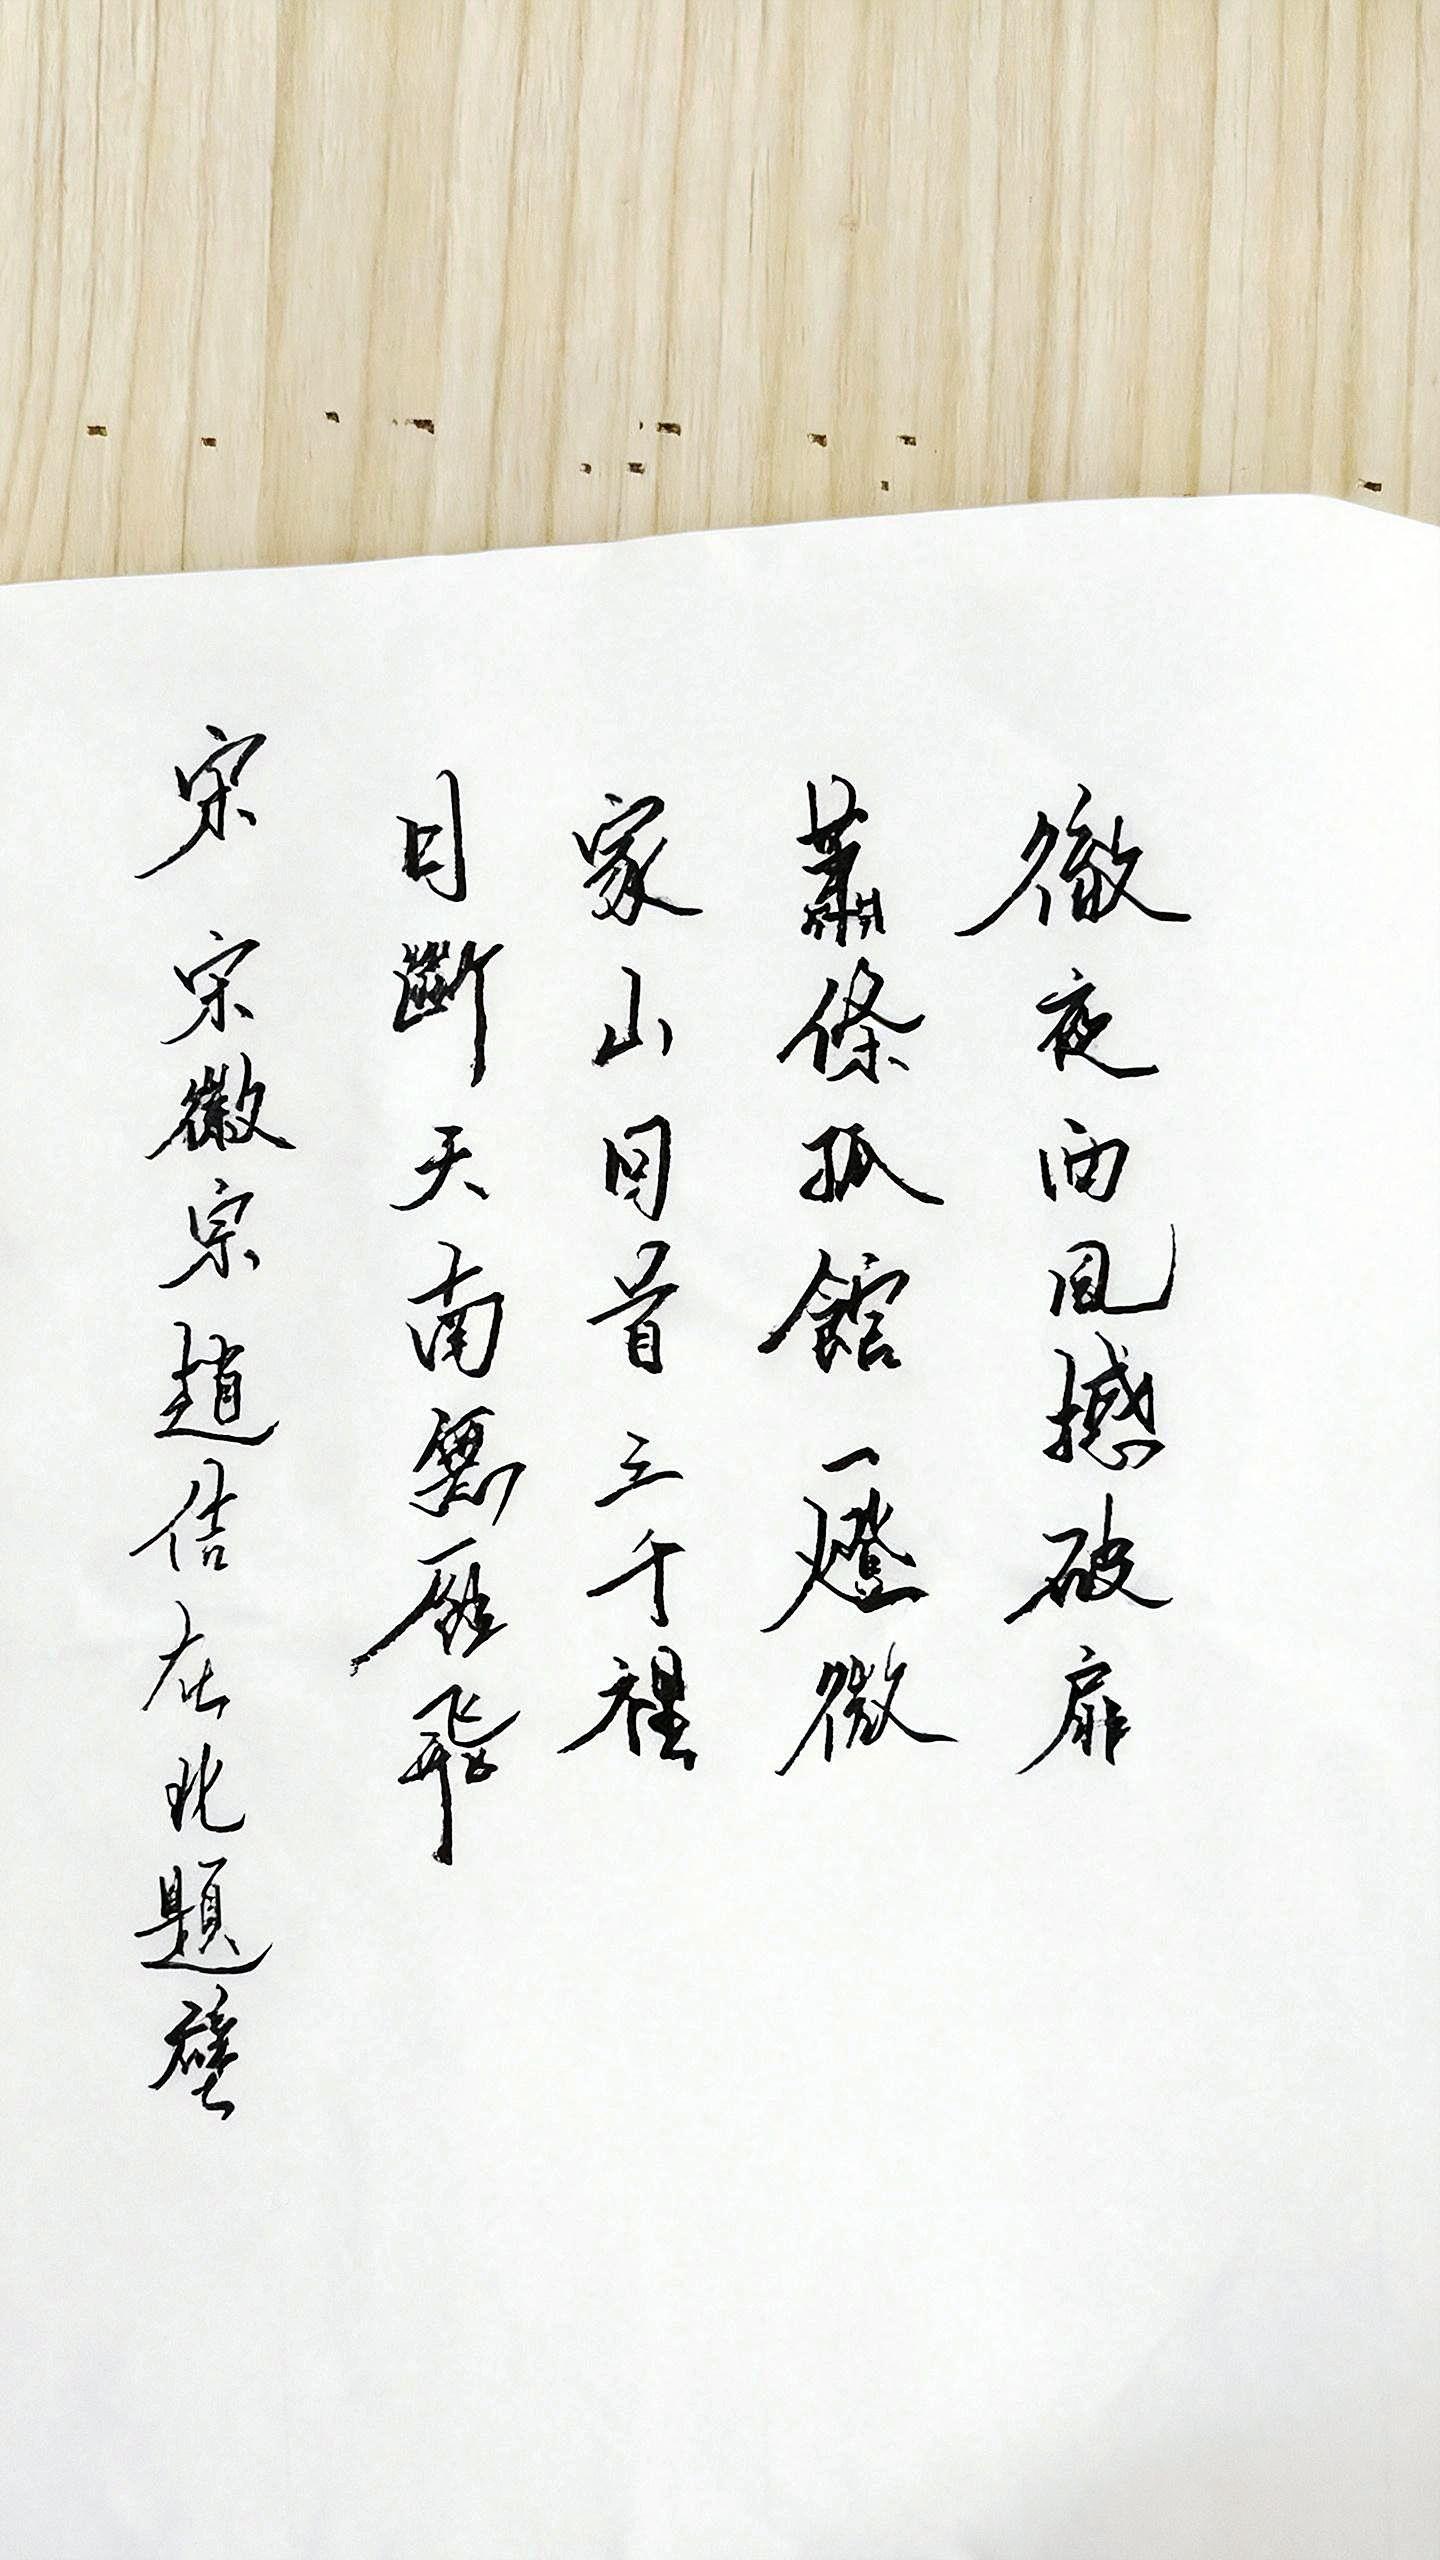 徹夜西風撼破扉
蕭條孤館一燈微
家山回首三千裡
目斷天南無雁飛
宋 宋徽宗趙佶在北題壁